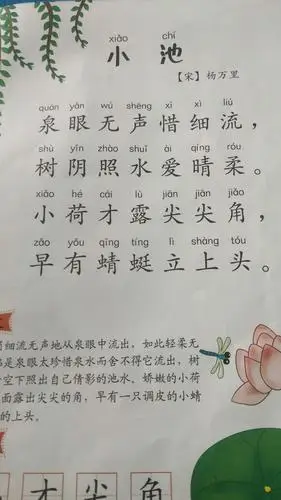 xiǎo chí
小 池
【宋】杨万里
quán yǎn wú shēng xī xì liú
泉眼无声惜细流，
shù yīn zhào shuǐ ài qíng róu
树阴照水爱晴柔。
xiǎo hé cái lù jiān jiān jiǎo
小荷才露尖尖角，
zǎo yǒu qīng tíng lì shàng tóu
早有蜻蜓立上头。
细流无声地从泉眼中流出，如此轻柔无
是泉眼太珍惜泉水而舍不得它流出，树
空下照出自己倩影的池水。娇嫩的小荷
面露出尖尖的角，早有一只调皮的小蜻
的上头。
才 尖 角